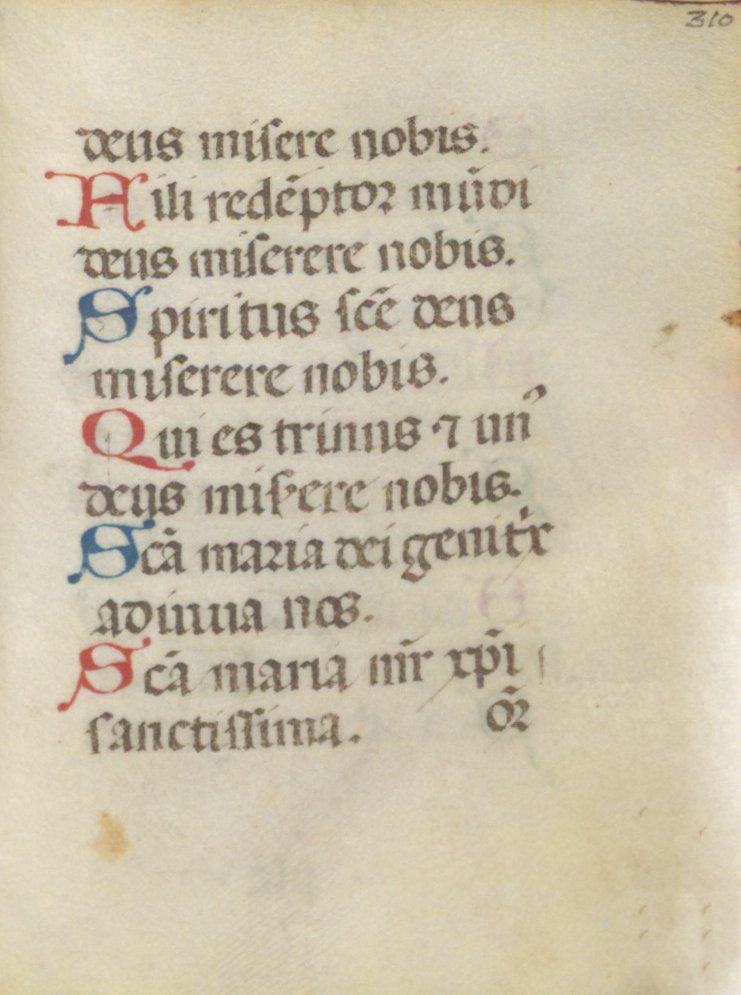 310
deus misere nobis.
Fili redēptor mūdi
deus miserere nobis.
Spiritus scē deus
miserere nobis.
Qui es trinus ⁊ unꝰ
deus misʼere nobis.
Scā maria dei genitˈx
adiuua nos.
Scā maria mr̄ xp̄i
sanctissima. or̄